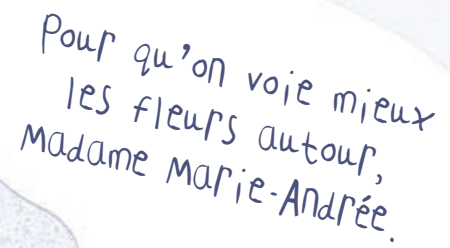 Pour qu'on voie mieux
les fleurs autour,
Madame Marie-Andrée.